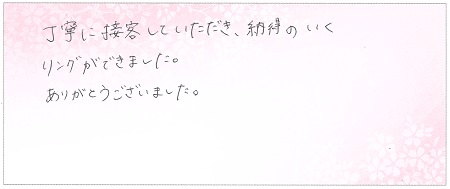 丁寧に接客していただき、納得のいく
リングができました。
ありがとうございました。